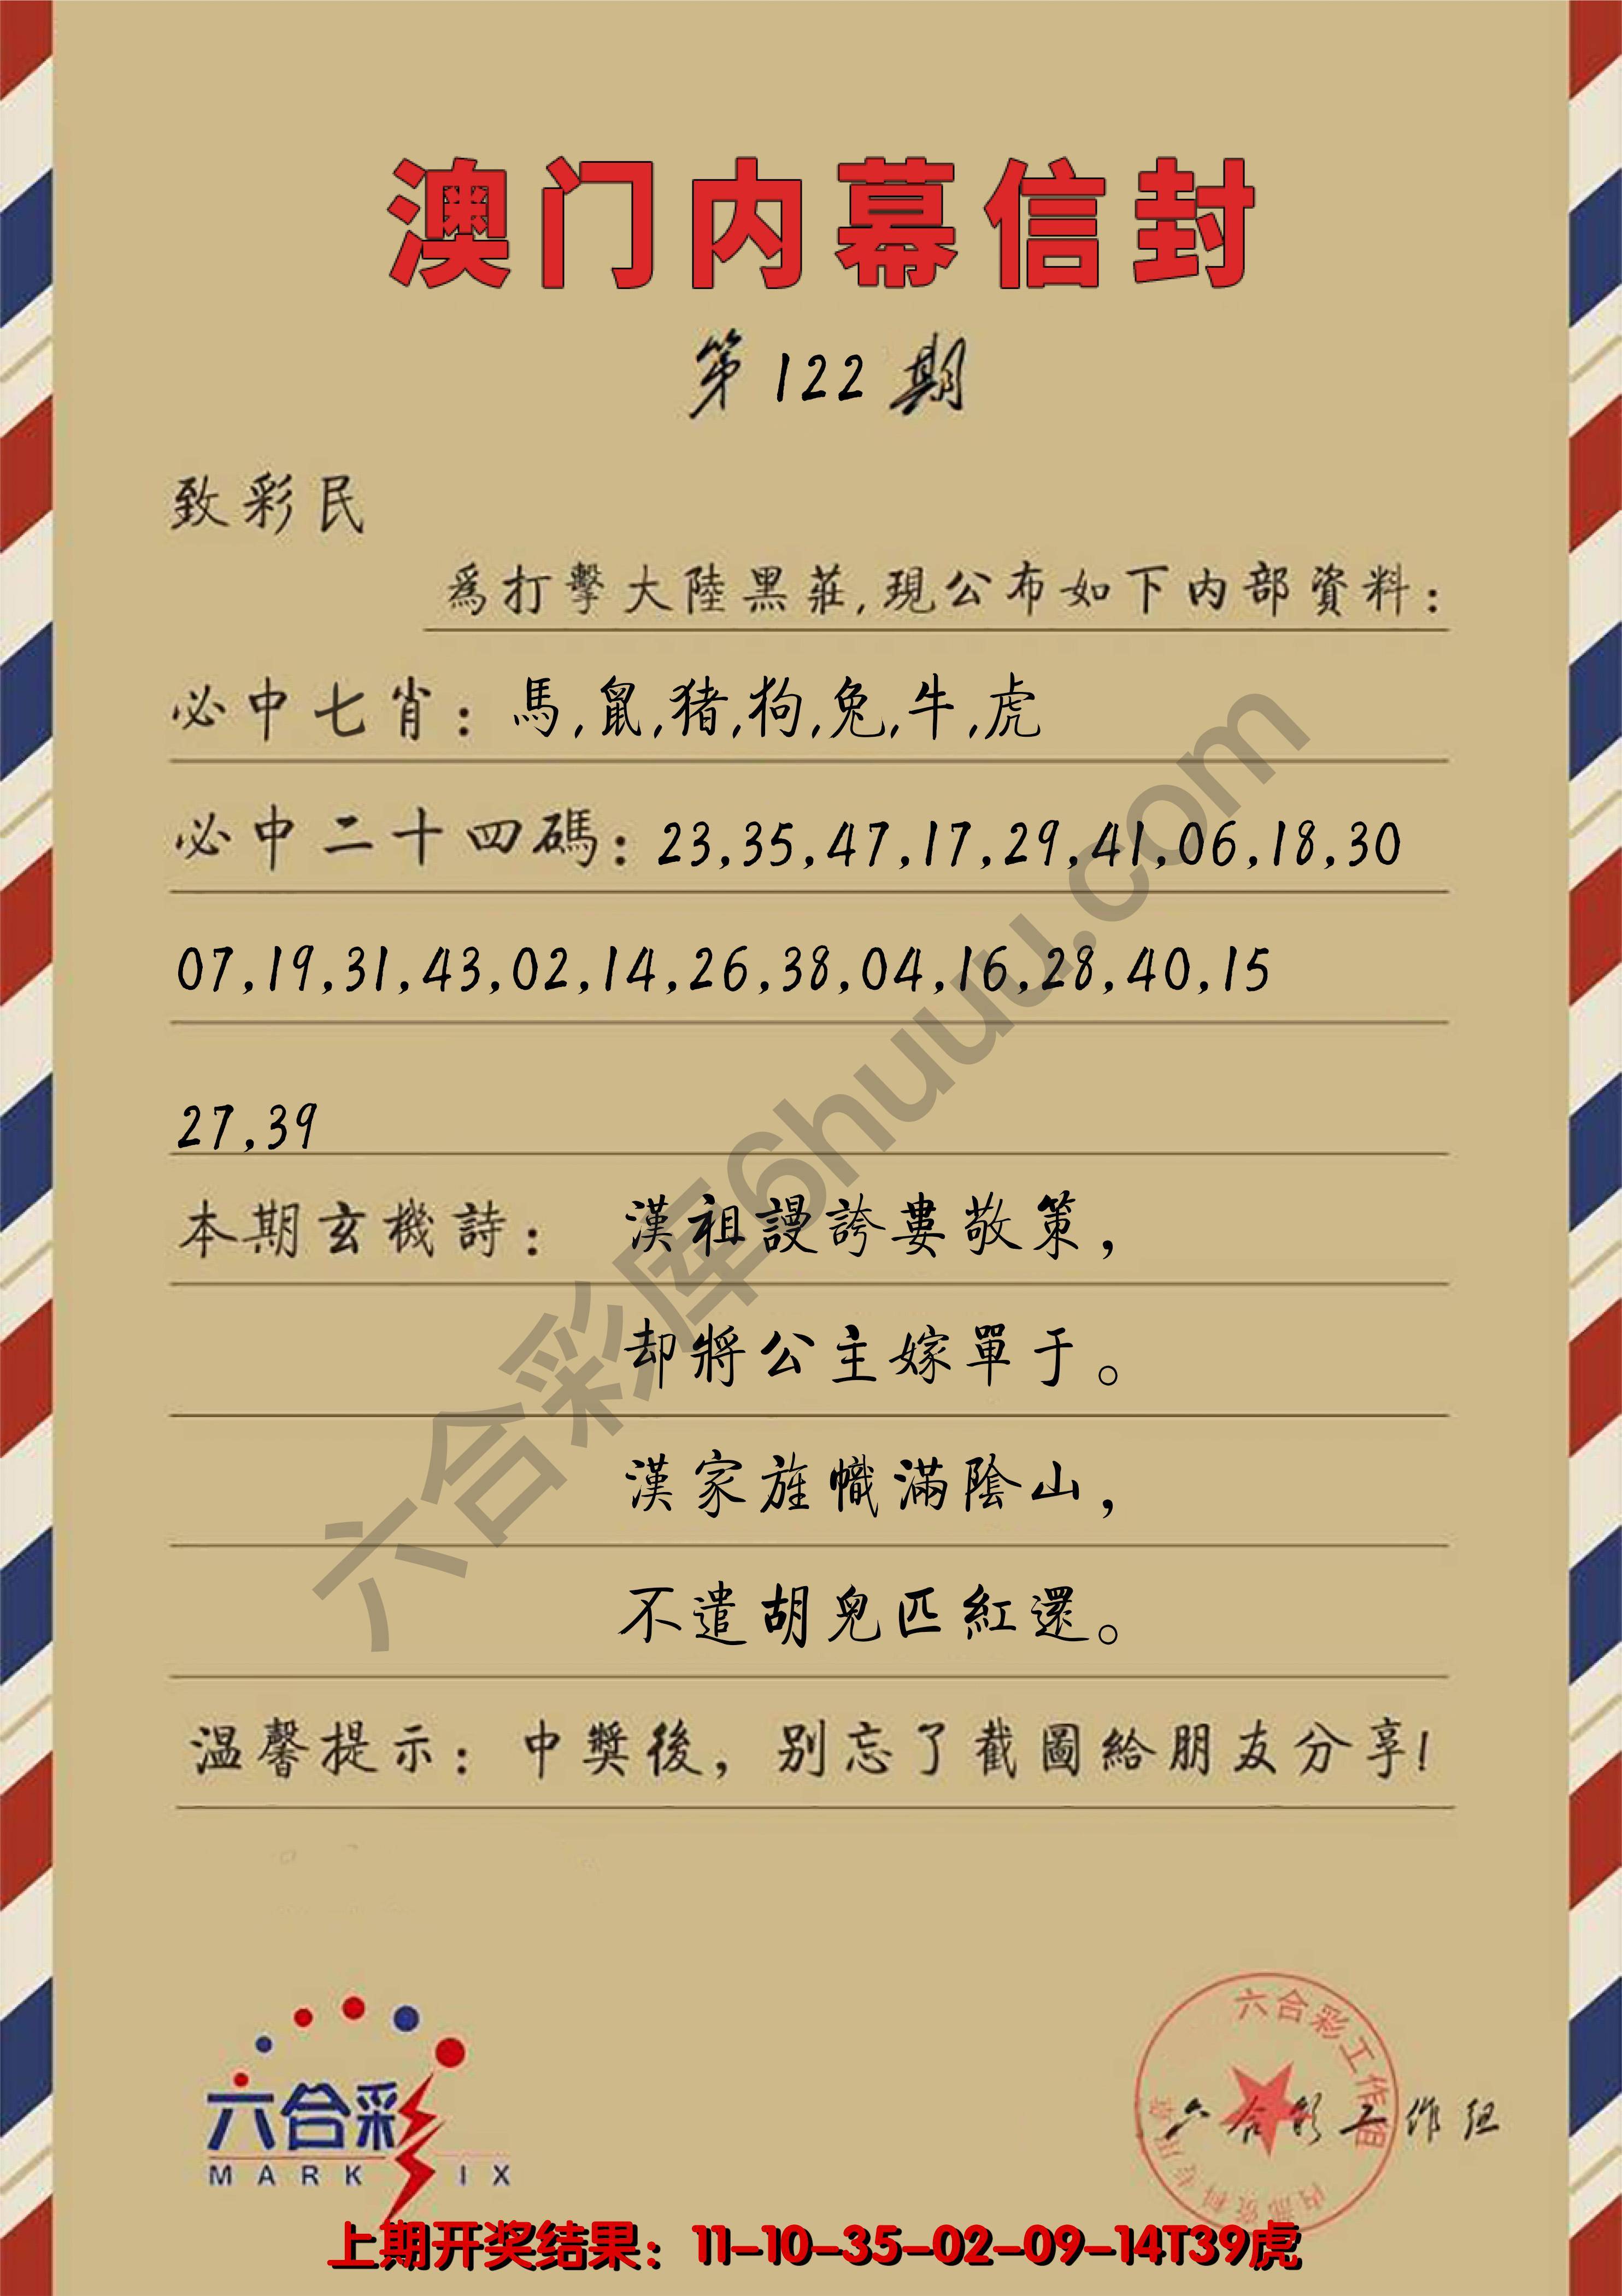 澳门内幕信封
第122期
致彩民
為打擊大陸黑莊,現公布如下内部資料:
必中七肖:馬,鼠,猪,狗,兔,牛,虎
必中二十四碼:23,35,47,17,29,41,06,18,30
07,19,31,43,02,14,26,38,04,16,28,40,15
27,39
本期玄機詩: 漢祖謾誇婁敬策,
却將公主嫁單于。
漢家旌幟滿陰山,
不遣胡兒匹紅還。
温馨提示:中獎後,别忘了截圖給朋友分享!
六合彩库6huuu.com
六合彩
MARK SIX
六合彩工作组
内部资料专用章
六合彩工作组
上期开奖结果:11-10-35-02-09-14T39虎